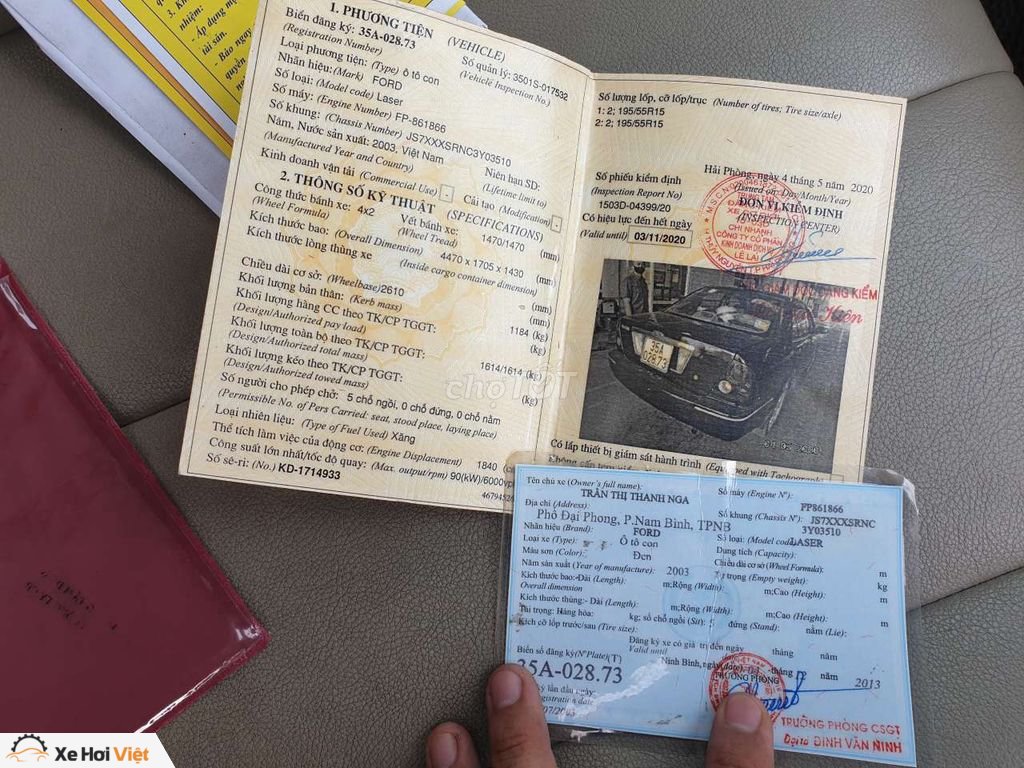 3. Kh
nhiệm:
- Áp dụng mụ
tài sản.
- Báo ngay
quyền
1. PHƯƠNG TIỆN (VEHICLE)
Biển đăng ký: 35A-028.73
(Registration Number)
Số quản lý: 3501S-017532
(Vehicle Inspection No.)
Loại phương tiện: (Type) ô tô con
Nhãn hiệu: (Mark) FORD
Số loại: (Model code) Laser
Số máy: (Engine Number) FP-861866
Số khung: (Chassis Number) JS7XXXSRNC3Y03510
Năm, Nước sản xuất: 2003, Việt Nam
(Manufactured Year and Country)
Niên hạn SD:
(Lifetime limit to)
Kinh doanh vận tải (Commercial Use) -
Cải tạo (Modification) -
2. THÔNG SỐ KỸ THUẬT (SPECIFICATIONS)
Công thức bánh xe: 4x2
(Wheel Formula)
Vết bánh xe: 1470/1470 (mm)
(Wheel Tread)
Kích thước bao: (Overall Dimension) 4470 x 1705 x 1430 (mm)
Kích thước lòng thùng xe (Inside cargo container dimension)
(mm)
Chiều dài cơ sở: (Wheelbase) 2610 (mm)
Khối lượng bản thân: (Kerb mass) 1184 (kg)
Khối lượng hàng CC theo TK/CP TGGT: (kg)
(Design/Authorized pay load)
Khối lượng toàn bộ theo TK/CP TGGT: 1614/1614 (kg)
(Design/Authorized total mass)
Khối lượng kéo theo TK/CP TGGT: (kg)
(Design/Authorized towed mass)
Số người cho phép chở: 5 chỗ ngồi, 0 chỗ đứng, 0 chỗ nằm
(Permissible No. of Pers Carried: seat, stood place, laying place)
Loại nhiên liệu: (Type of Fuel Used) Xăng
Thể tích làm việc của động cơ: (Engine Displacement) 1840
Công suất lớn nhất/tốc độ quay: (Max. output/rpm) 90(kW)/6000vp
Số sê-ri: (No.) KD-1714933
Số lượng lốp, cỡ lốp/trục (Number of tires; Tire size/axle)
1: 2; 195/55R15
2: 2; 195/55R15
Hải Phòng, ngày 4 tháng 5 năm 2020
(Issued on: Day/Month/Year)
Số phiếu kiểm định
(Inspection Report No)
1503D-04399/20
ĐƠN VỊ KIỂM ĐỊNH
(INSPECTION CENTER)
Có hiệu lực đến hết ngày
(Valid until) 03/11/2020
CHI NHÁNH
CÔNG TY CỔ PHẦN
KINH DOANH DỊCH VỤ
LÊ LAI
35A
028.73
chợTỐT
Có lắp thiết bị giám sát hành trình (Equipped with Tachograph)
Tên chủ xe (Owner's full name):
TRẦN THỊ THANH NGA
Địa chỉ (Address):
Phố Đại Phong, P.Nam Bình, TPNB
Nhãn hiệu (Brand): FORD
Loại xe (Type): Ô tô con
Màu sơn (Color): Đen
Năm sản xuất (Year of manufacture): 2003
Số máy (Engine Nº): FP861866
Số khung (Chassis Nº): JS7XXXSRNC
3Y03510
Số loại: (Model code) LASER
Dung tích (Capacity):
Chiều dài cơ sở (Wheel Formula): m
Tự trọng (Empty weight): kg
Kích thước bao:-Dài (Length): m;Rộng (Width): m;Cao (Height): m
Overall dimension
Kích thước thùng:- Dài (Length): m;Rộng (Width): m;Cao (Height): m
Tải trọng: Hàng hóa: kg; số chỗ ngồi (Sit): 5 đứng (Stand): nằm (Lie):
Kích cỡ lốp trước/sau (Tire size):
Đăng ký xe có giá trị đến ngày tháng năm
Valid until
Biển số đăng ký(NºPlate)(T)
35A-028.73
Ninh Bình, ngày tháng 7 năm 2013
TRƯỞNG PHÒNG
ký lần đầu ngày:
registration date
TRƯỞNG PHÒNG CSGT
Đại tá ĐINH VĂN NINH
Xe Hơi Việt